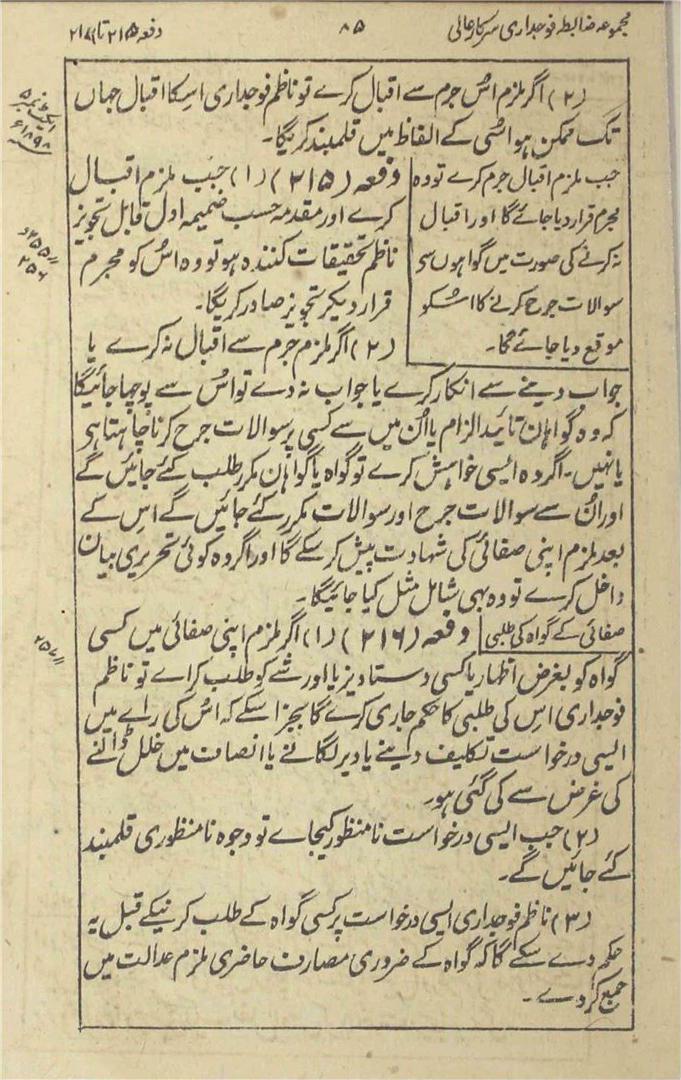 مجموعہ ضابطہ فوجداری سرکار عالی
۸۵
دفعہ ۲۱۵ تا ۲۱۶
(۲) اگر ملزم اُس جرم سے اقبال کرے تو ناظم فوجداری اسکا اقبال جہاں
تک ممکن ہو اسُی کے الفاظ میں قلمبند کریگا۔
ایکٹ نمبر ۵
۱۸۹۸ء
جب ملزم اقبال جرم کرے تو وہ
مجرم قرار دیا جائے گا اور اقبال
نہ کرنے کی صورت میں گواہوں سی
سوالات جرح کرنے کا اسُکو
موقع دیا جائے گا۔
دفعہ (۲۱۵) (۱) جب ملزم اقبال
کرے اور مقدمہ حسب ضمیمہ اول قابل تجویز
ناظم تحقیقات کنندہ ہو تو وہ اسُ کو مجرم
قرار دیکر تجویز صادر کریگا۔
۲۵۵ و
۲۵۶
(۲) اگر ملزم جرم سے اقبال نہ کرے یا
جواب دینے سے انکار کرے یا جواب نہ دے تو اسُ سے پوچھا جائیگا
کہ وہ گواہان تائید الزام یا انُ میں سے کسی پر سوالات جرح کرنا چاہتا ہی
یا نہیں۔ اگر وہ ایسی خواہش کرے تو گواہ یا گواہان مکرر طلب کئے جائیں گے
اور انُ سے سوالات جرح اور سوالات مکرر کئے جائیں گے اس کے
بعد ملزم اپنی صفائی کی شہادت پیش کر سکے گا اور اگر وہ کوئی تحریری بیان
داخل کرے تو وہ بھی شامل مثل کیا جائیگا۔
صفائی کے گواہ کی طلبی
دفعہ (۲۱۶) (۱) اگر ملزم اپنی صفائی میں کسی
گواہ کو بغرض اظہار یا کسی دستاویز یا اور شے کو طلب کراے تو ناظم
فوجداری اس کی طلبی کا حکم جاری کرے گا بجز اسکے کہ اسُ کی راے میں
ایسی درخواست تکلیف دینے یا دیر لگانے یا انصاف میں خلل ڈالنے
کی غرض سے کی گئی ہو۔
(۲) جب ایسی درخواست نامنظور کیجاے تو وجوہ نامنظوری قلمبند
کئے جائیں گے۔
(۳) ناظم فوجداری ایسی درخواست پر کسی گواہ کے طلب کرنیکے قبل یہ
حکم دے سکے گا کہ گواہ کے ضروری مصارف حاضری ملزم عدالت میں
جمع کر دے۔